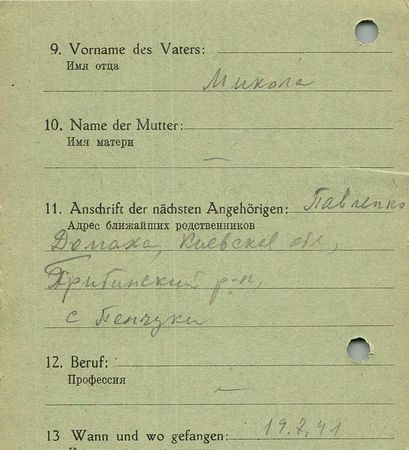 9. Vorname des Vaters:
Имя отца
Микола
10. Name der Mutter:
Имя матери
—
11. Anschrift der nächsten Angehörigen: Павленко
Адрес ближайших родственников
Домаха, Киевская обл,
р-н,
с Пенчуки
12. Beruf:
Профессия
—
13 Wann und wo gefangen: 19.7,41